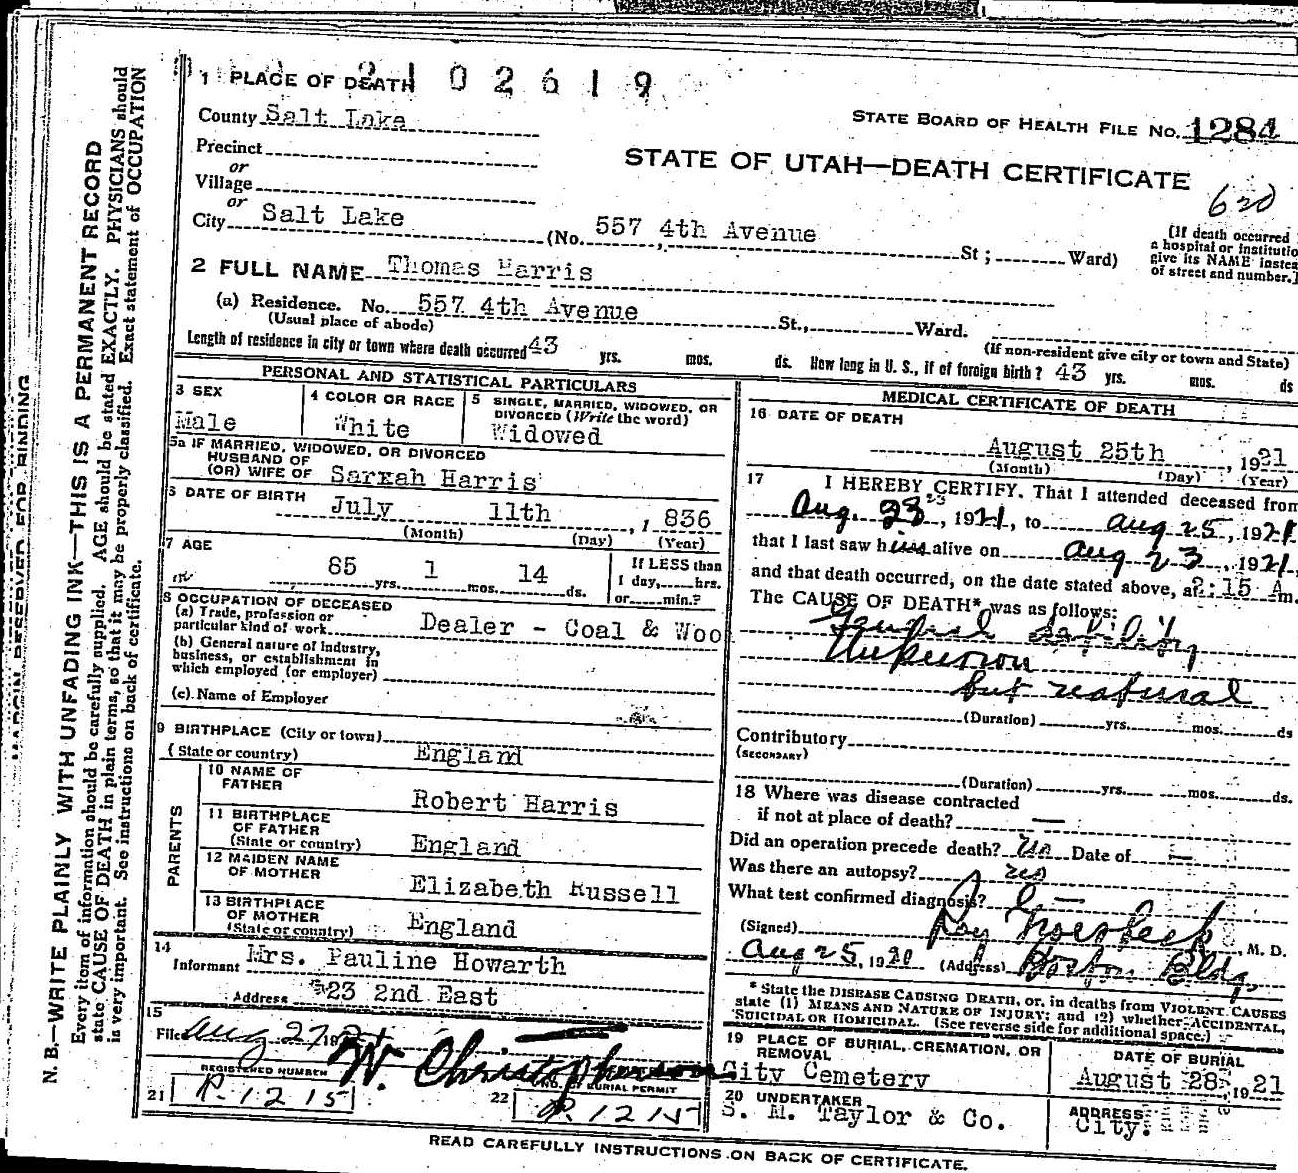 1 PLACE OF DEATH
2102619
County Salt Lake
STATE BOARD OF HEALTH FILE No. 1284
Precinct
or
Village
or
City Salt Lake
STATE OF UTAH—DEATH CERTIFICATE
620
(No. 557 4th Avenue St; Ward)
(If death occurred
a hospital or institutio
give its NAME instea
of street and number.)
2 FULL NAME Thomas Harris
(a) Residence. No. 557 4th Avenue St., Ward.
(Usual place of abode)
(If non-resident give city or town and State)
Length of residence in city or town where death occurred 43 yrs. mos. ds. How long in U. S., if of foreign birth? 43 yrs. mos. ds
PERSONAL AND STATISTICAL PARTICULARS
3 SEX
Male
4 COLOR OR RACE
White
5 SINGLE, MARRIED, WIDOWED, OR
DIVORCED (Write the word)
Widowed
5a IF MARRIED, WIDOWED, OR DIVORCED
HUSBAND OF
(OR) WIFE OF Sarxah Harris
6 DATE OF BIRTH
July 11th, 1836
(Month) (Day) (Year)
7 AGE
85 yrs. 1 mos. 14 ds.
If LESS than
1 day, hrs.
or min.?
8 OCCUPATION OF DECEASED
(a) Trade, profession or
particular kind of work Dealer - Coal & Woo
(b) General nature of Industry,
business, or establishment in
which employed (or employer)
(c) Name of Employer
9 BIRTHPLACE (City or town)
(State or country) England
PARENTS
10 NAME OF
FATHER
Robert Harris
11 BIRTHPLACE
OF FATHER
(State or country) England
12 MAIDEN NAME
OF MOTHER
Elizabeth Russell
13 BIRTHPLACE
OF MOTHER
(State or country) England
14
Informant Mrs. Pauline Howarth
Address 323 2nd East
15
Filed Aug 27, 192
W. Christopherson
REGISTERED NUMBER
21 R. 1215
NO. OF BURIAL PERMIT
22 R. 1215
MEDICAL CERTIFICATE OF DEATH
16 DATE OF DEATH
August 25th, 1921
(Month) (Day) (Year)
17 I HEREBY CERTIFY, That I attended deceased from
Aug. 23, 1921, to Aug 25, 1921
that I last saw him alive on Aug 23, 1921,
and that death occurred, on the date stated above, at 2:15 A m.
The CAUSE OF DEATH* was as follows:
General debility
but natural
(Duration) yrs. mos. ds
Contributory
(SECONDARY)
(Duration) yrs. mos. ds.
18 Where was disease contracted
if not at place of death? —
Did an operation precede death? no Date of —
Was there an autopsy? no
What test confirmed diagnosis? —
(Signed) Roy Groesbeck M. D.
Aug 25, 1920 (Address) Boston Bldg.
* State the DISEASE CAUSING DEATH, or, in deaths from VIOLENT CAUSES
state (1) MEANS AND NATURE OF INJURY; and (2) whether ACCIDENTAL,
SUICIDAL OR HOMICIDAL. (See reverse side for additional space.)
19 PLACE OF BURIAL, CREMATION, OR
REMOVAL
City Cemetery
DATE OF BURIAL
August 28, 1921
20 UNDERTAKER
S. M. Taylor & Co.
ADDRESS
City.
READ CAREFULLY INSTRUCTIONS ON BACK OF CERTIFICATE.
MARGIN RESERVED FOR BINDING
N. B.—WRITE PLAINLY WITH UNFADING INK—THIS IS A PERMANENT RECORD
Every item of information should be carefully supplied. AGE should be stated EXACTLY. PHYSICIANS should
state CAUSE OF DEATH in plain terms, so that it may be properly classified. Exact statement of OCCUPATION
is very important. See instructions on back of certificate.